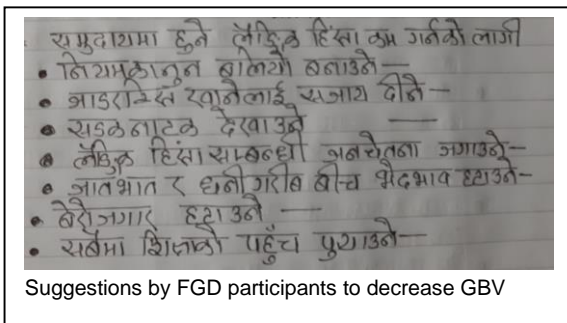 समुदायमा हुने लैङ्गिक हिंसा कम गर्नको लागी
• नियमकानुन बलियो बनाउने —
• जाडरक्सि खानेलाई सजाय दीने —
• सडक नाटक देखाउने —
• लैङ्गिक हिंसा सम्बन्धी जनचेतना जगाउने —
• जातभात र धनी गरीब बीच भेदभाव हटाउने —
• बेरोजगार हटाउने —
• सबैमा शिक्षाको पहुँच पुर्‍याउने —
Suggestions by FGD participants to decrease GBV